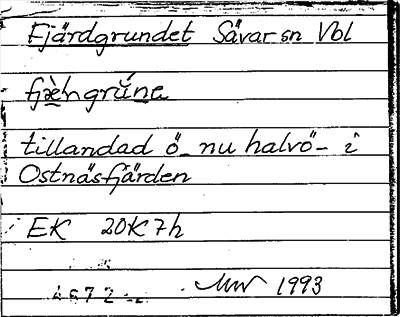 Fjärdgrundet Sävar sn Vbl
tillandad ö - nu halvö - i
Ostnäsfjärden
EK 20K 7h
1993